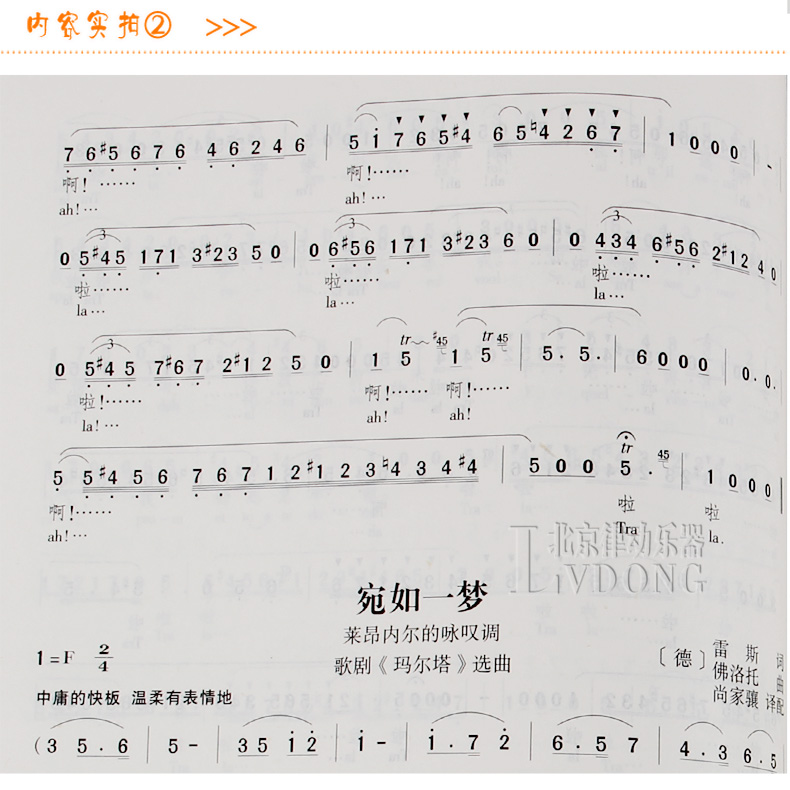 内容实拍② >>>
7 6 #5 6 7 6 4 6 2 4 6 | 5 i 7 6 5 #4 6 5 ♮4 2 6 7 | 1 0 0 0 | -
啊！…… 啊！……
ah!… ah!…
3 3 3
0 5 #4 5 1 7 1 3 #2 3 5 0 | 0 6 #5 6 1 7 1 3 #2 3 6 0 | 0 4 3 4 6 #5 6 2 #1 2 4 0
啦…… 啦…… 啦……
la… la… la…
3 tr #45 tr 45
0 5 #4 5 7 #6 7 2 #1 2 5 0 | 1 5 1 5 | 5. 5. | 6 0 0 0 | 0. 0.
啦！…… 啊！…… 啊！……
la!… ah! ah!
tr 45
5 5 #4 5 6 7 6 7 1 2 #1 2 3 ♮4 3 4 #4 | 5 0 0 5. | 1 0 0 0
啊！…… 啦 啦
ah!… Tra la.
北京律动乐器
LVDONG
宛如一梦
莱昂内尔的咏叹调
歌剧《玛尔塔》选曲
1=F 2/4
〔德〕雷斯 词
佛洛托 曲
尚家骧 译配
中庸的快板 温柔有表情地
(3 5.6 | 5- | 35 i2 | i- | i.7 2 | 6.5 7 | 4.3 6.5